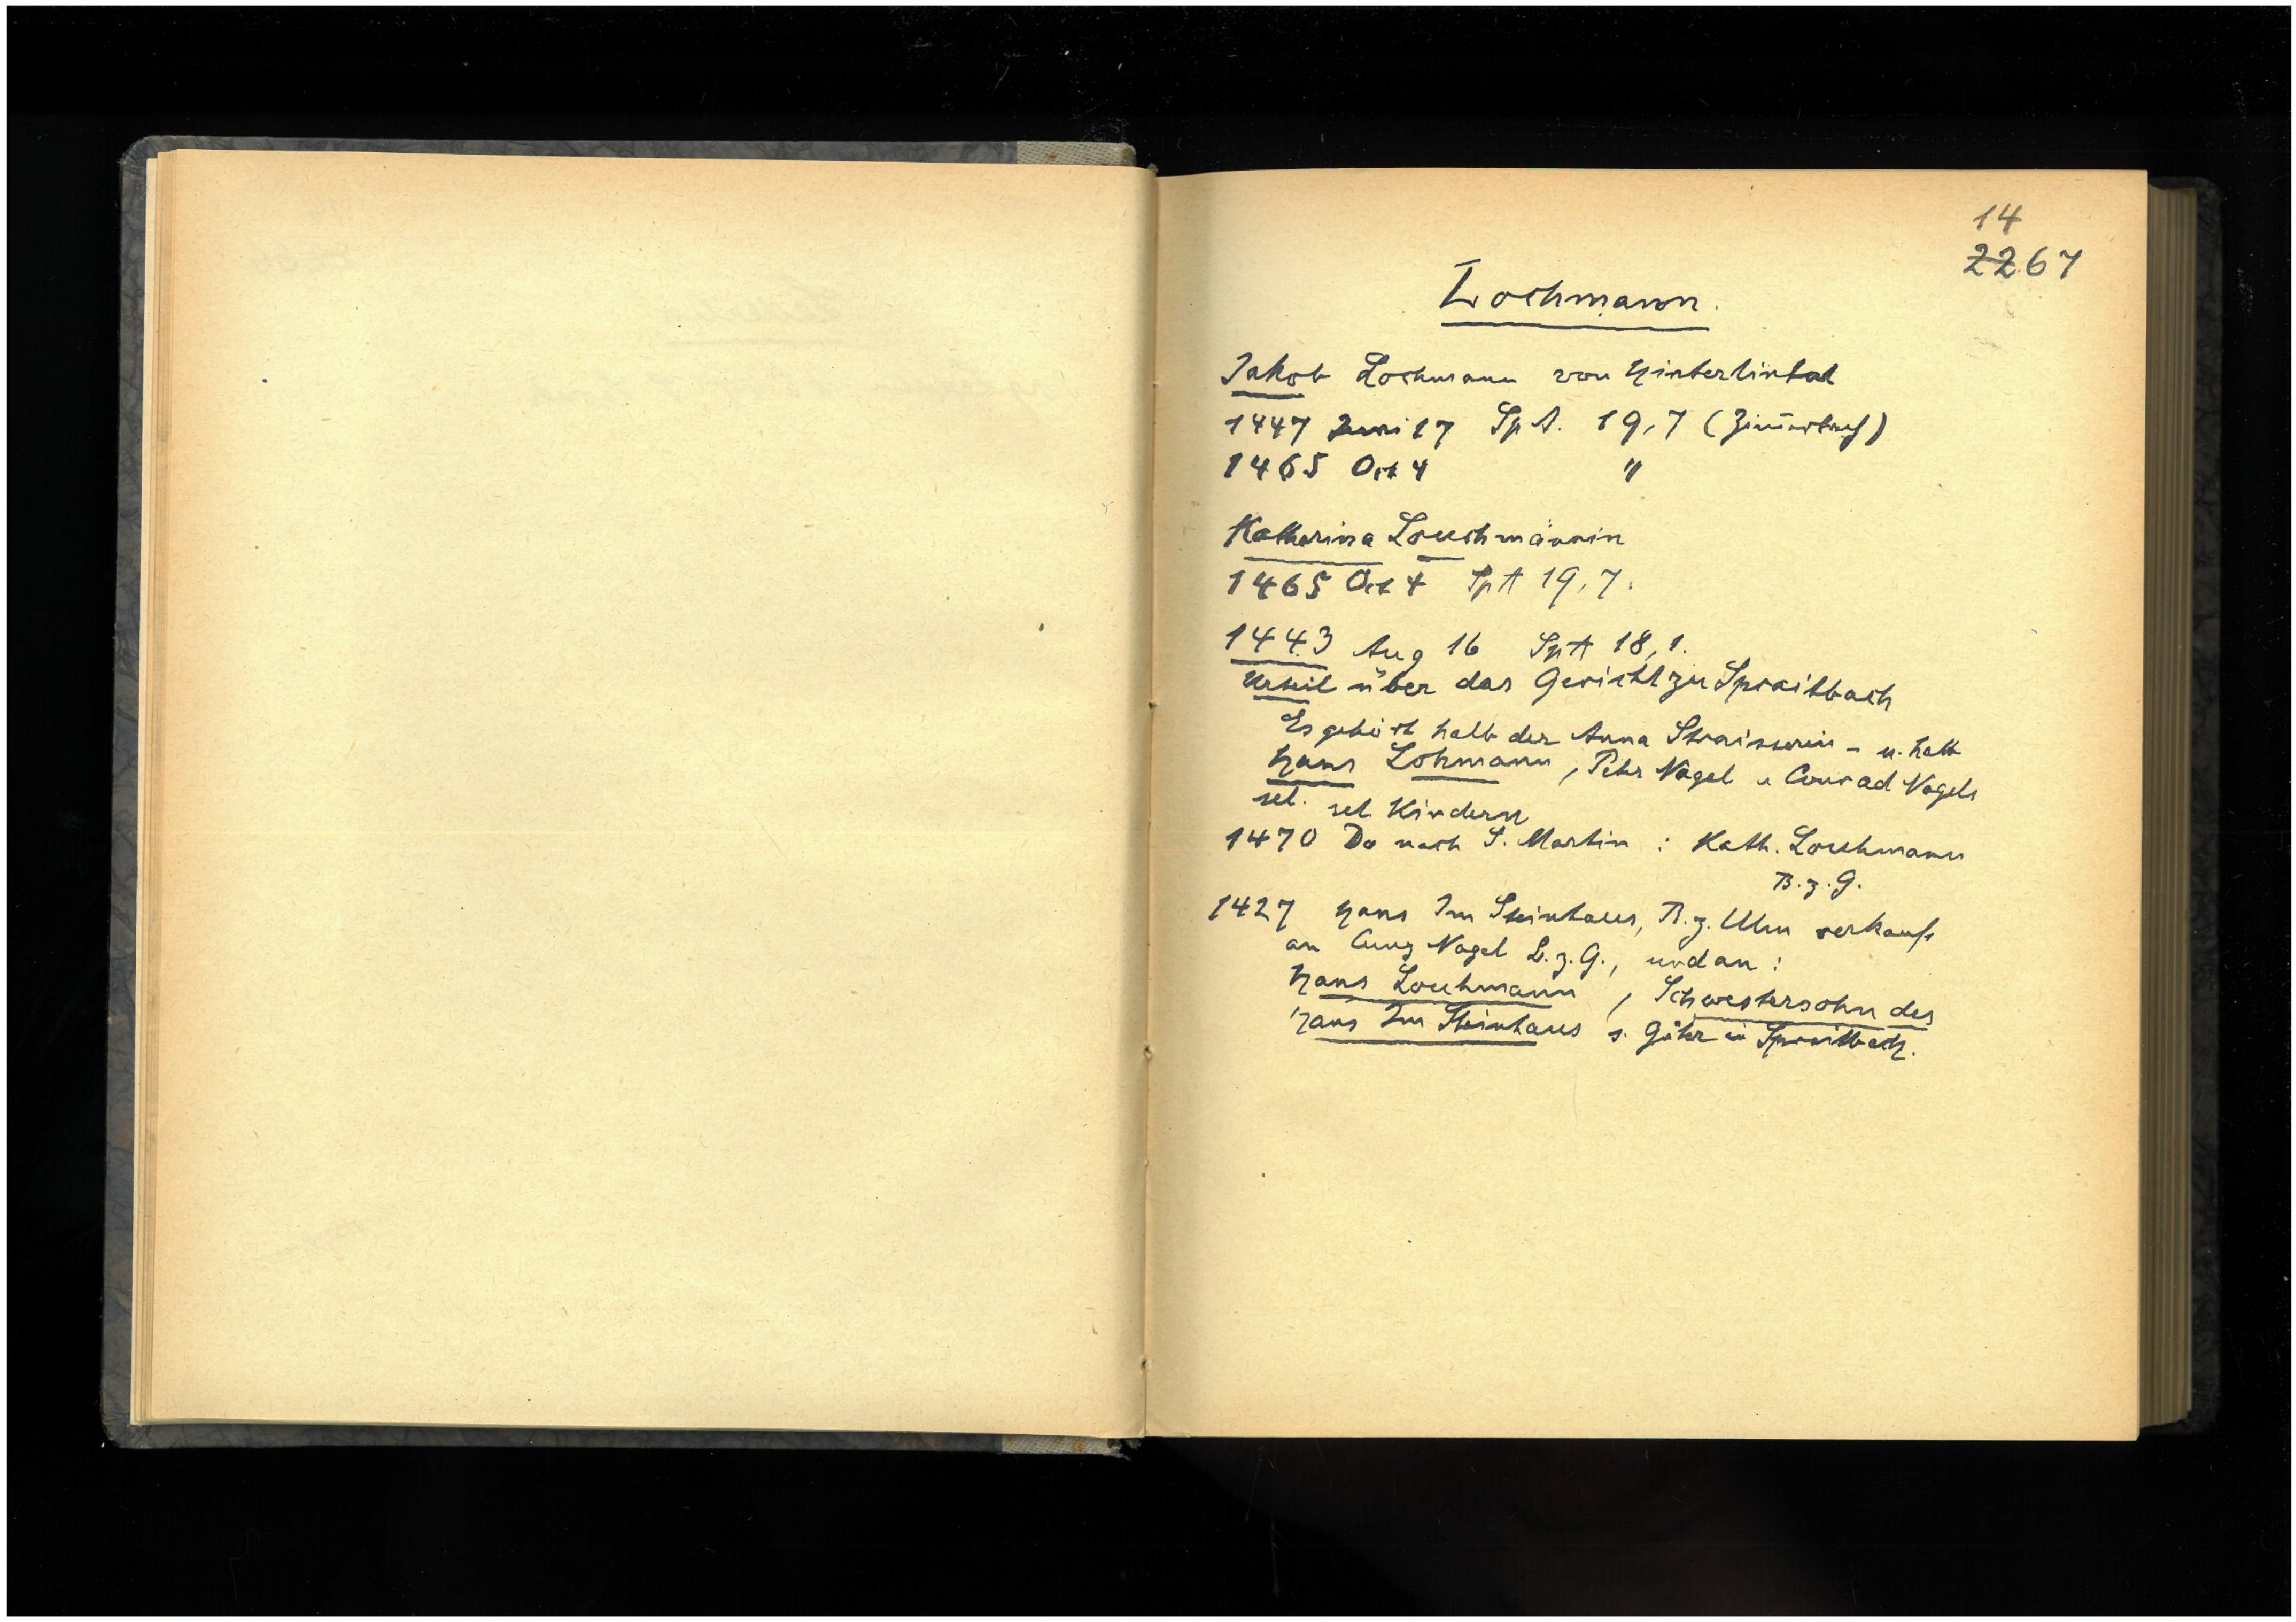 14
2267
Lochmann.
Jakob Lochmann von Hinterlintal
1447 Juni 17 Sp A. 19,7 (Zim̄erbach)
1465 Oct 4 "
Katherina Louchmännin
1465 Oct 4 Sp A 19,7.
1443 Aug 16 Sp A 18,1.
Urteil über das Gericht zu Spraitbach
Es gehört halb der Anna Straisserin - u. halb
Hans Lohmann, Peter Nagel u Conrad Nagels
sel. sel Kindern
1470 Do nach S. Martin : Kath. Louchmann
B. z. G.
1427 Hans Im Steinhaus, B. z. Ulm verkauft
an Cunz Nagel B. z. G., und an :
Hans Louchmann, Schwestersohn des
Hans Im Steinhaus s. Güter in Spraitbach.